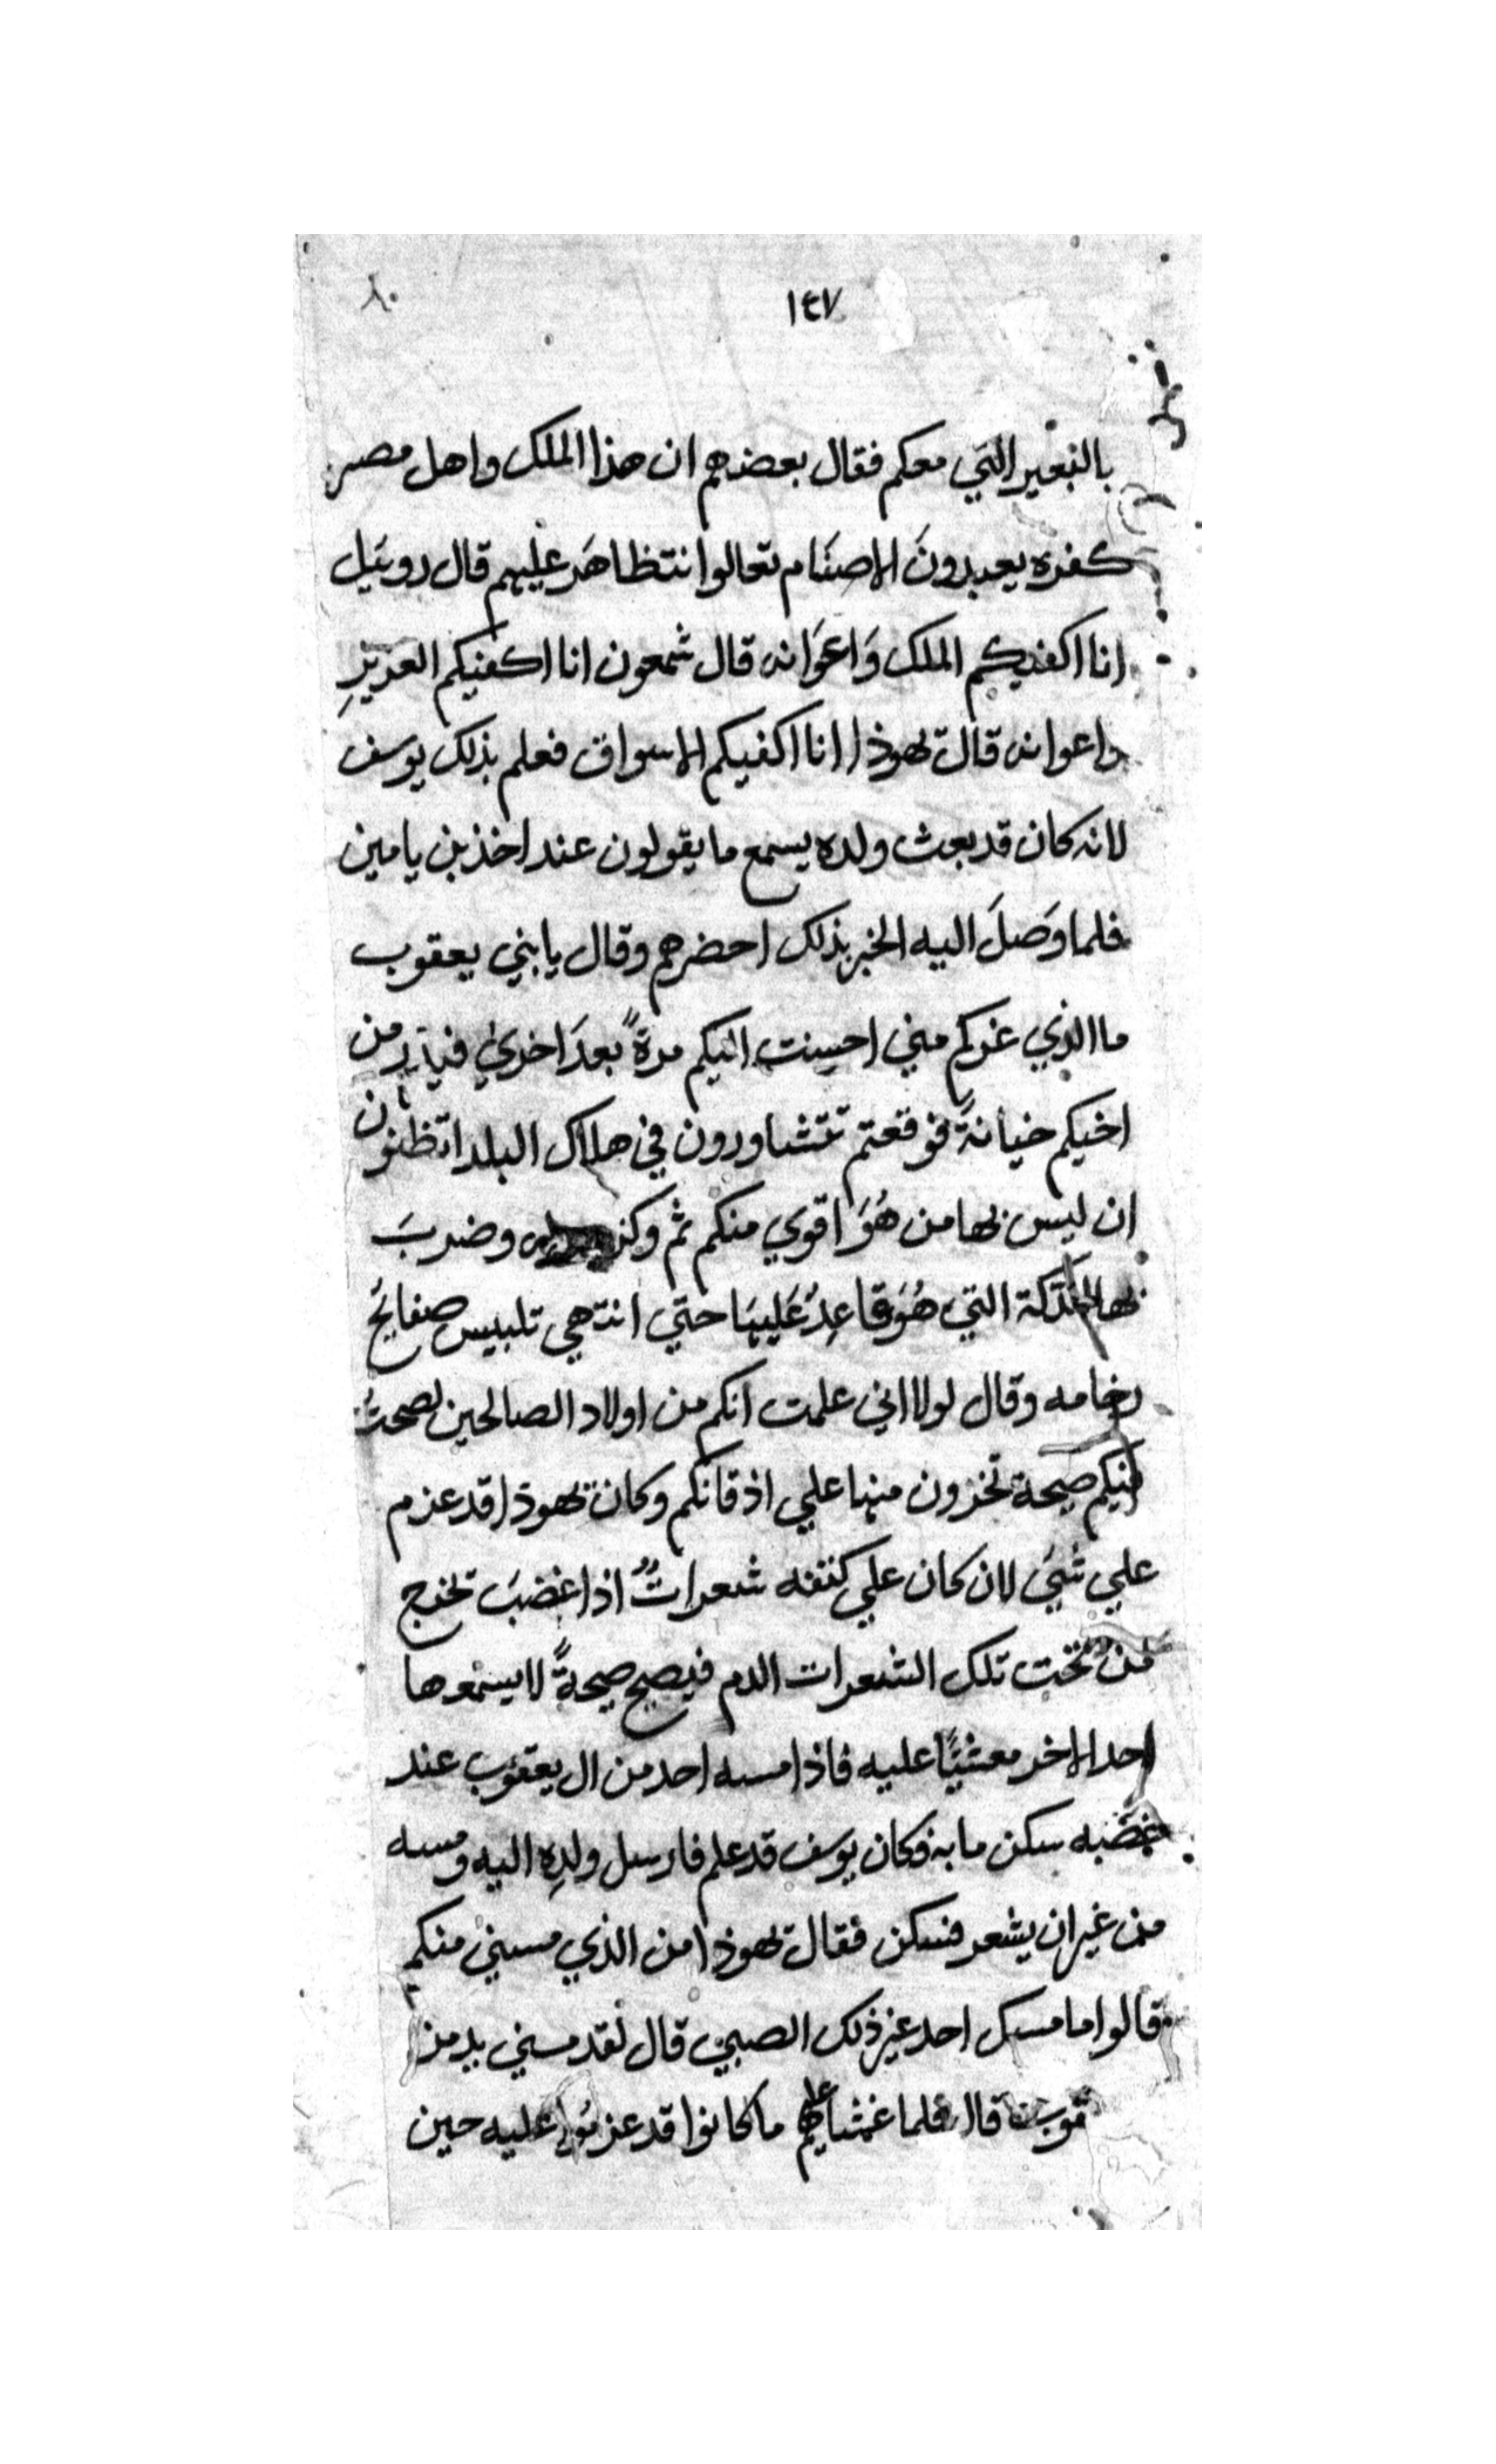 ١٤٧
٨٠
بالبعير التي معكم فقال بعضهم ان هذا الملك واهل مصر
كفره يعبدونَ الاصنَام تعالوا نتظاهَر عليهم قال روبيل
انا اكفيكم الملك وَاعوَانه قال شمعون انا اكفيكم العزيزِ
واعوانه قال يهوذا انا اكفيكم الاسواق فعلم بذلك يوسف
لانه كان قد بعث ولده يسمع ما يقولون عند اخذ بن يامين
فلما وَصلَ اليه الخبر بذلك احضرهم وقال يا بني يعقوب
ما الذي غركم مني احسنت اليكم مرةً بعدَ اخري من
اخيكم خيانةً فوقعتم تتشاورون في هلاك البلد اتظنون
ان ليس بها من هُوَ اقوي منكم ثم وكز وضربَ
بها التي هُوَ قاعِدُ عَليهَا حتي انتهي تلبيس صفايحُ
رخامه وقال لولا اني علمت انكم من اولاد الصالحين لصحتُ
فيكم صيحة تخرون منها علي اذقانكم وكان يهوذا قد عزم
علي شيَ لان كان علي كتفه شعراتٌ اذا غضبَ تخرج
من تحت تلك الشعرات الدم فيصيح صيحةً لا يسمعها
احد الا خر مغشيًا عليه فاذا مسه احد من ال يعقوب عند
غضبه سكن ما به وكان يوسف قد علم فارسل ولدِه اليه ومسه
من غير ان يشعر فسكن فقال يهوذا من الذي مسني منكم
قالوا ما مسك احد غير ذلك الصبي قال لقد مسني يد من
قال فلما ما كانوا قد عزموا عليه حين